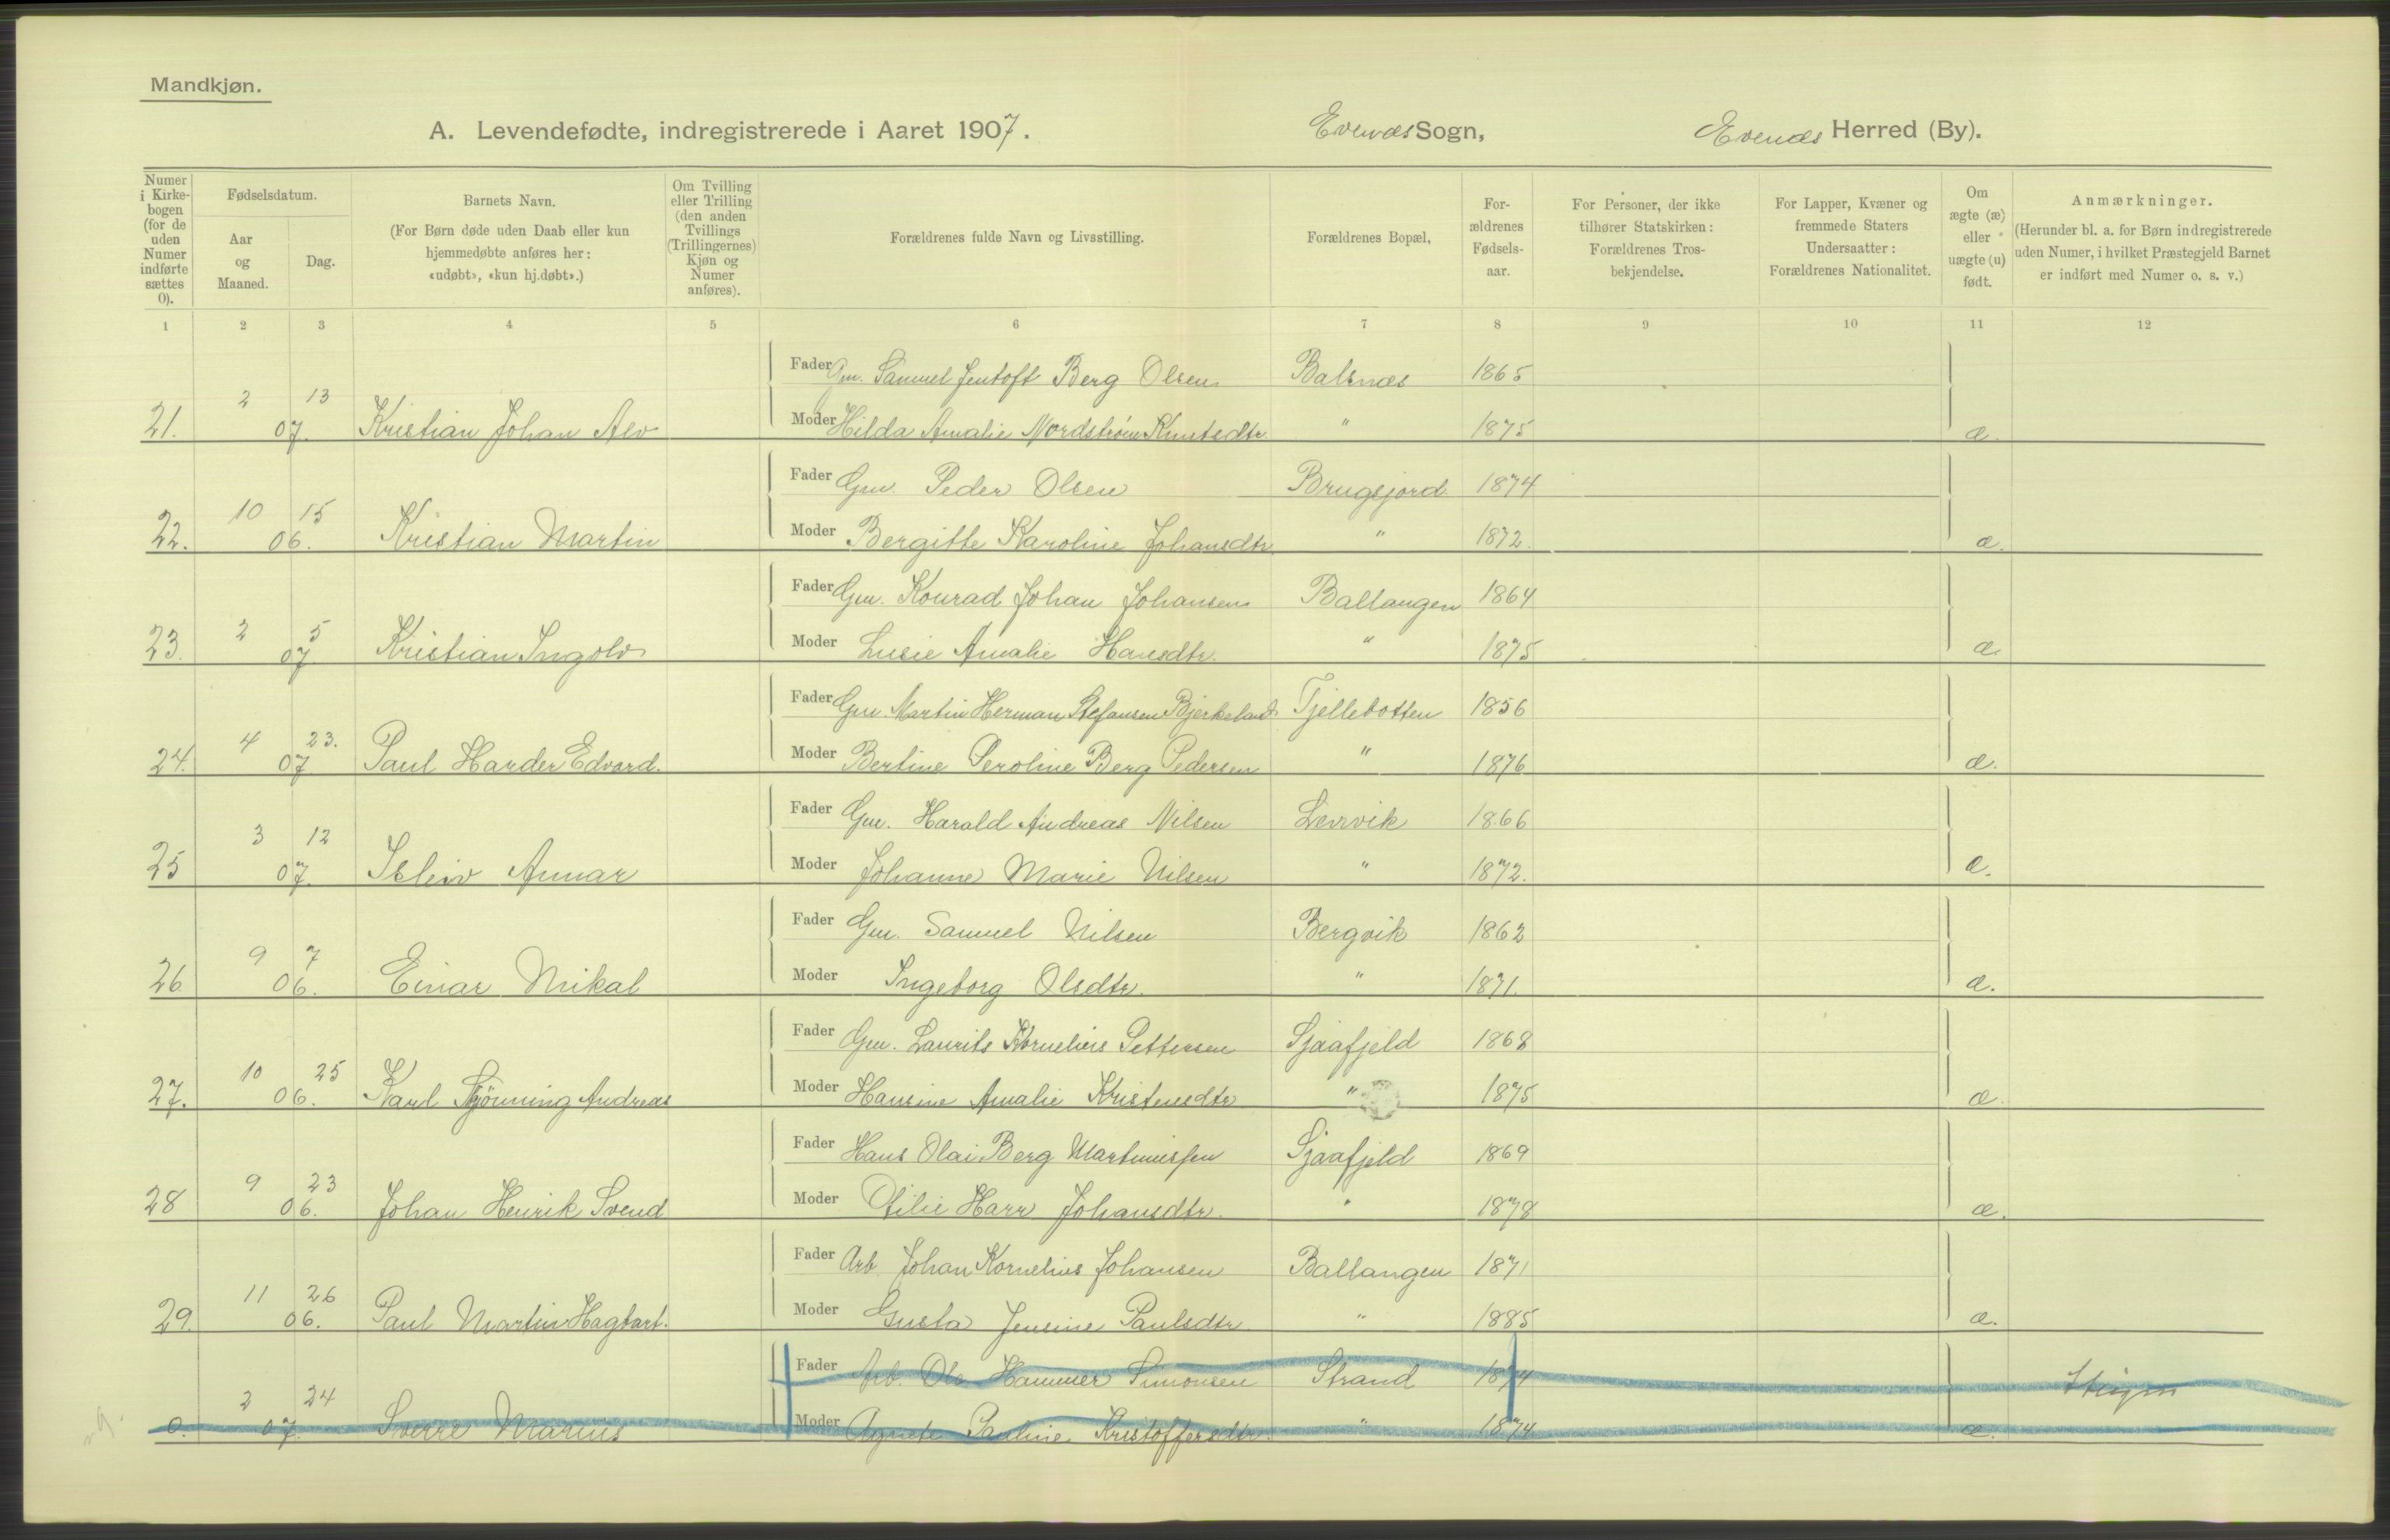 Mandkjøn.
A. Levendefødte, indregistrerede i Aaret 1907. Evenæs Sogn, Evenæs Herred (By).
Numer i Kirkebogen (for de uden Numer indførte sættes 0).
Fødselsdatum.
Aar og Maaned.
Dag.
Barnets Navn.
(For Børn døde uden Daab eller kun hjemmedøbte anføres her: «udøbt», «kun hj.døbt».)
Om Tvilling eller Trilling (den anden Tvillings (Trillingernes) Kjøn og Numer anføres).
Forældrenes fulde Navn og Livsstilling.
Forældrenes Bopæl,
Forældrenes Fødselsaar.
For Personer, der ikke tilhører Statskirken: Forældrenes Trosbekjendelse.
For Lapper, Kvæner og fremmede Staters Undersaatter: Forældrenes Nationalitet.
Om ægte (æ) eller uægte (u) født.
Anmærkninger.
(Herunder bl. a. for Børn indregistrerede uden Numer, i hvilket Præstegjeld Barnet er indført med Numer o. s. v.)
1 2 3 4 5 6 7 8 9 10 11 12
Fader Gm. Samuel Jentoft Berg Olsen Balsnæs 1865
21. 2 07. 13 Kristian Johan Alv Moder Hilda Amalie Nordstrøm Knutsdtr. " 1875 æ.
Fader Gm. Peder Olsen Brugsjord 1874
22. 10 06. 15 Kristian Martin Moder Bergitte Karoline Johansdtr. " 1872. æ.
Fader Gm. Konrad Johan Johansen Ballangen 1864
23. 2 07. 5 Kristian Ingolv Moder Lusie Amalie Hansdtr. " 1875 æ.
Fader Gm. Martin Herman Stefansen Bjerkeland Tjellebotten 1856
24. 4 07 23. Paul Harder Edvard. Moder Bertine Peroline Berg Pedersen " 1876 æ.
Fader Gm. Harald Andreas Nilsen Lervik 1866
25 3 07. 12 Isleiv Annar Moder Johanne Marie Nilsen " 1872. æ.
Fader Gm. Samuel Nilsen Bergvik 1862
26 9 06. 7 Einar Mikal Moder Ingeborg Olsdtr. " 1871. æ.
Fader Gm. Laurits Kornelius Pettersen Sjaafjeld 1868
27. 10 06. 25 Karl Andreas Moder Hansine Amalie Kristensdtr " 1875 æ.
Fader Hans Olai Berg Martinussen Sjaafjeld 1869
28 9 06. 23 Johan Henrik Svend Moder Otilie Harr Johansdtr. " 1878 æ.
Fader Arb. Johan Kornelius Johansen Ballangen 1871
29. 11 06. 26 Paul Martin Hagbart. Moder Gusta Jensine Paulsdtr " 1885 æ.
Fader Arb. Ole Hammer Simonsen Strand 1874
0. 2 07. 24 Sverre Marius Moder Agnete Pauline Kristoffersdtr. " 1874 æ.